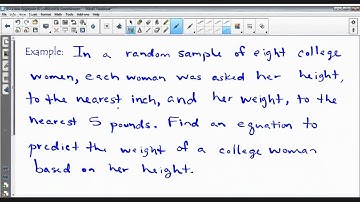 Example: In a random sample of eight college
women, each woman was asked her height,
to the nearest inch, and her weight, to the
nearest 5 pounds. Find an equation to
predict the weight of a college woman
based on her height.